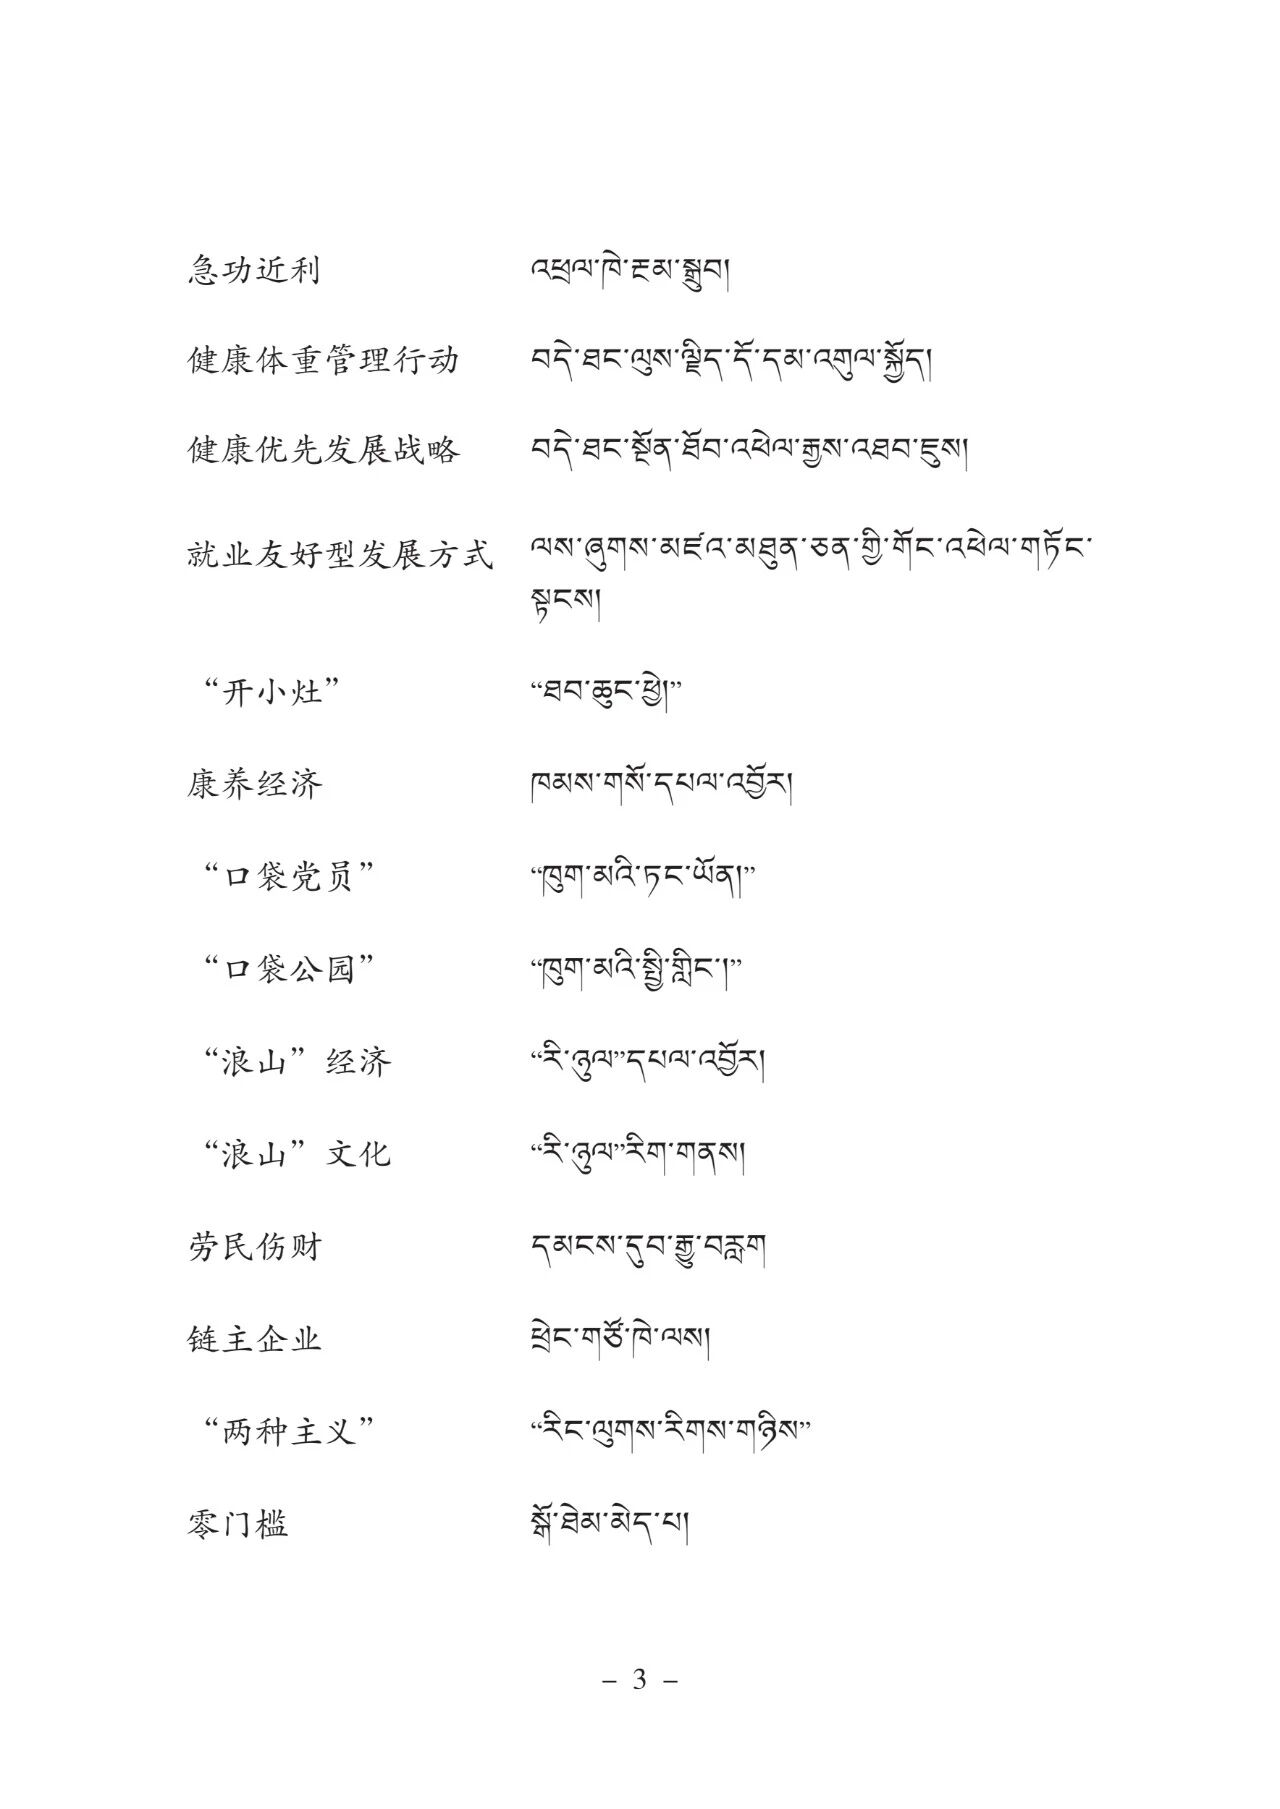 急功近利 འཕྲལ་ཁེ་རྔམ་སྒྲུབ།
健康体重管理行动 བདེ་ཐང་ལུས་ལྗིད་དོ་དམ་འགུལ་སྐྱོད།
健康优先发展战略 བདེ་ཐང་སྔོན་ཐོབ་འཕེལ་རྒྱས་འཐབ་ཇུས།
就业友好型发展方式 ལས་ཞུགས་མཛའ་མཐུན་ཅན་གྱི་གོང་འཕེལ་གཏོང་
སྟངས།
“开小灶” “ཐབ་ཆུང་ཕྱེ།”
康养经济 ཁམས་གསོ་དཔལ་འབྱོར།
“口袋党员” “ཁུག་མའི་ཏང་ཡོན།”
“口袋公园” “ཁུག་མའི་སྤྱི་གླིང་།”
“浪山”经济 “རི་ཉུལ”དཔལ་འབྱོར།
“浪山”文化 “རི་ཉུལ”རིག་གནས།
劳民伤财 དམངས་དུབ་རྒྱུ་བརླག
链主企业 ཕྲེང་གཙོ་ཁེ་ལས།
“两种主义” “རིང་ལུགས་རིགས་གཉིས”
零门槛 སྒོ་ཐེམ་མེད་པ།
– 3 –